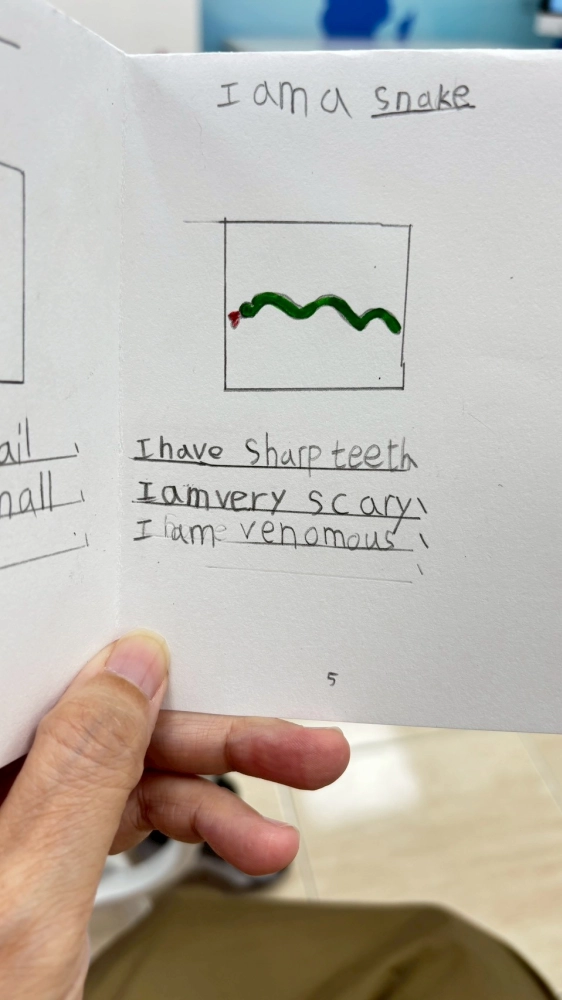 I am a snake
ail
nall
I have sharp teeth
I am very scary
I am venomous
5